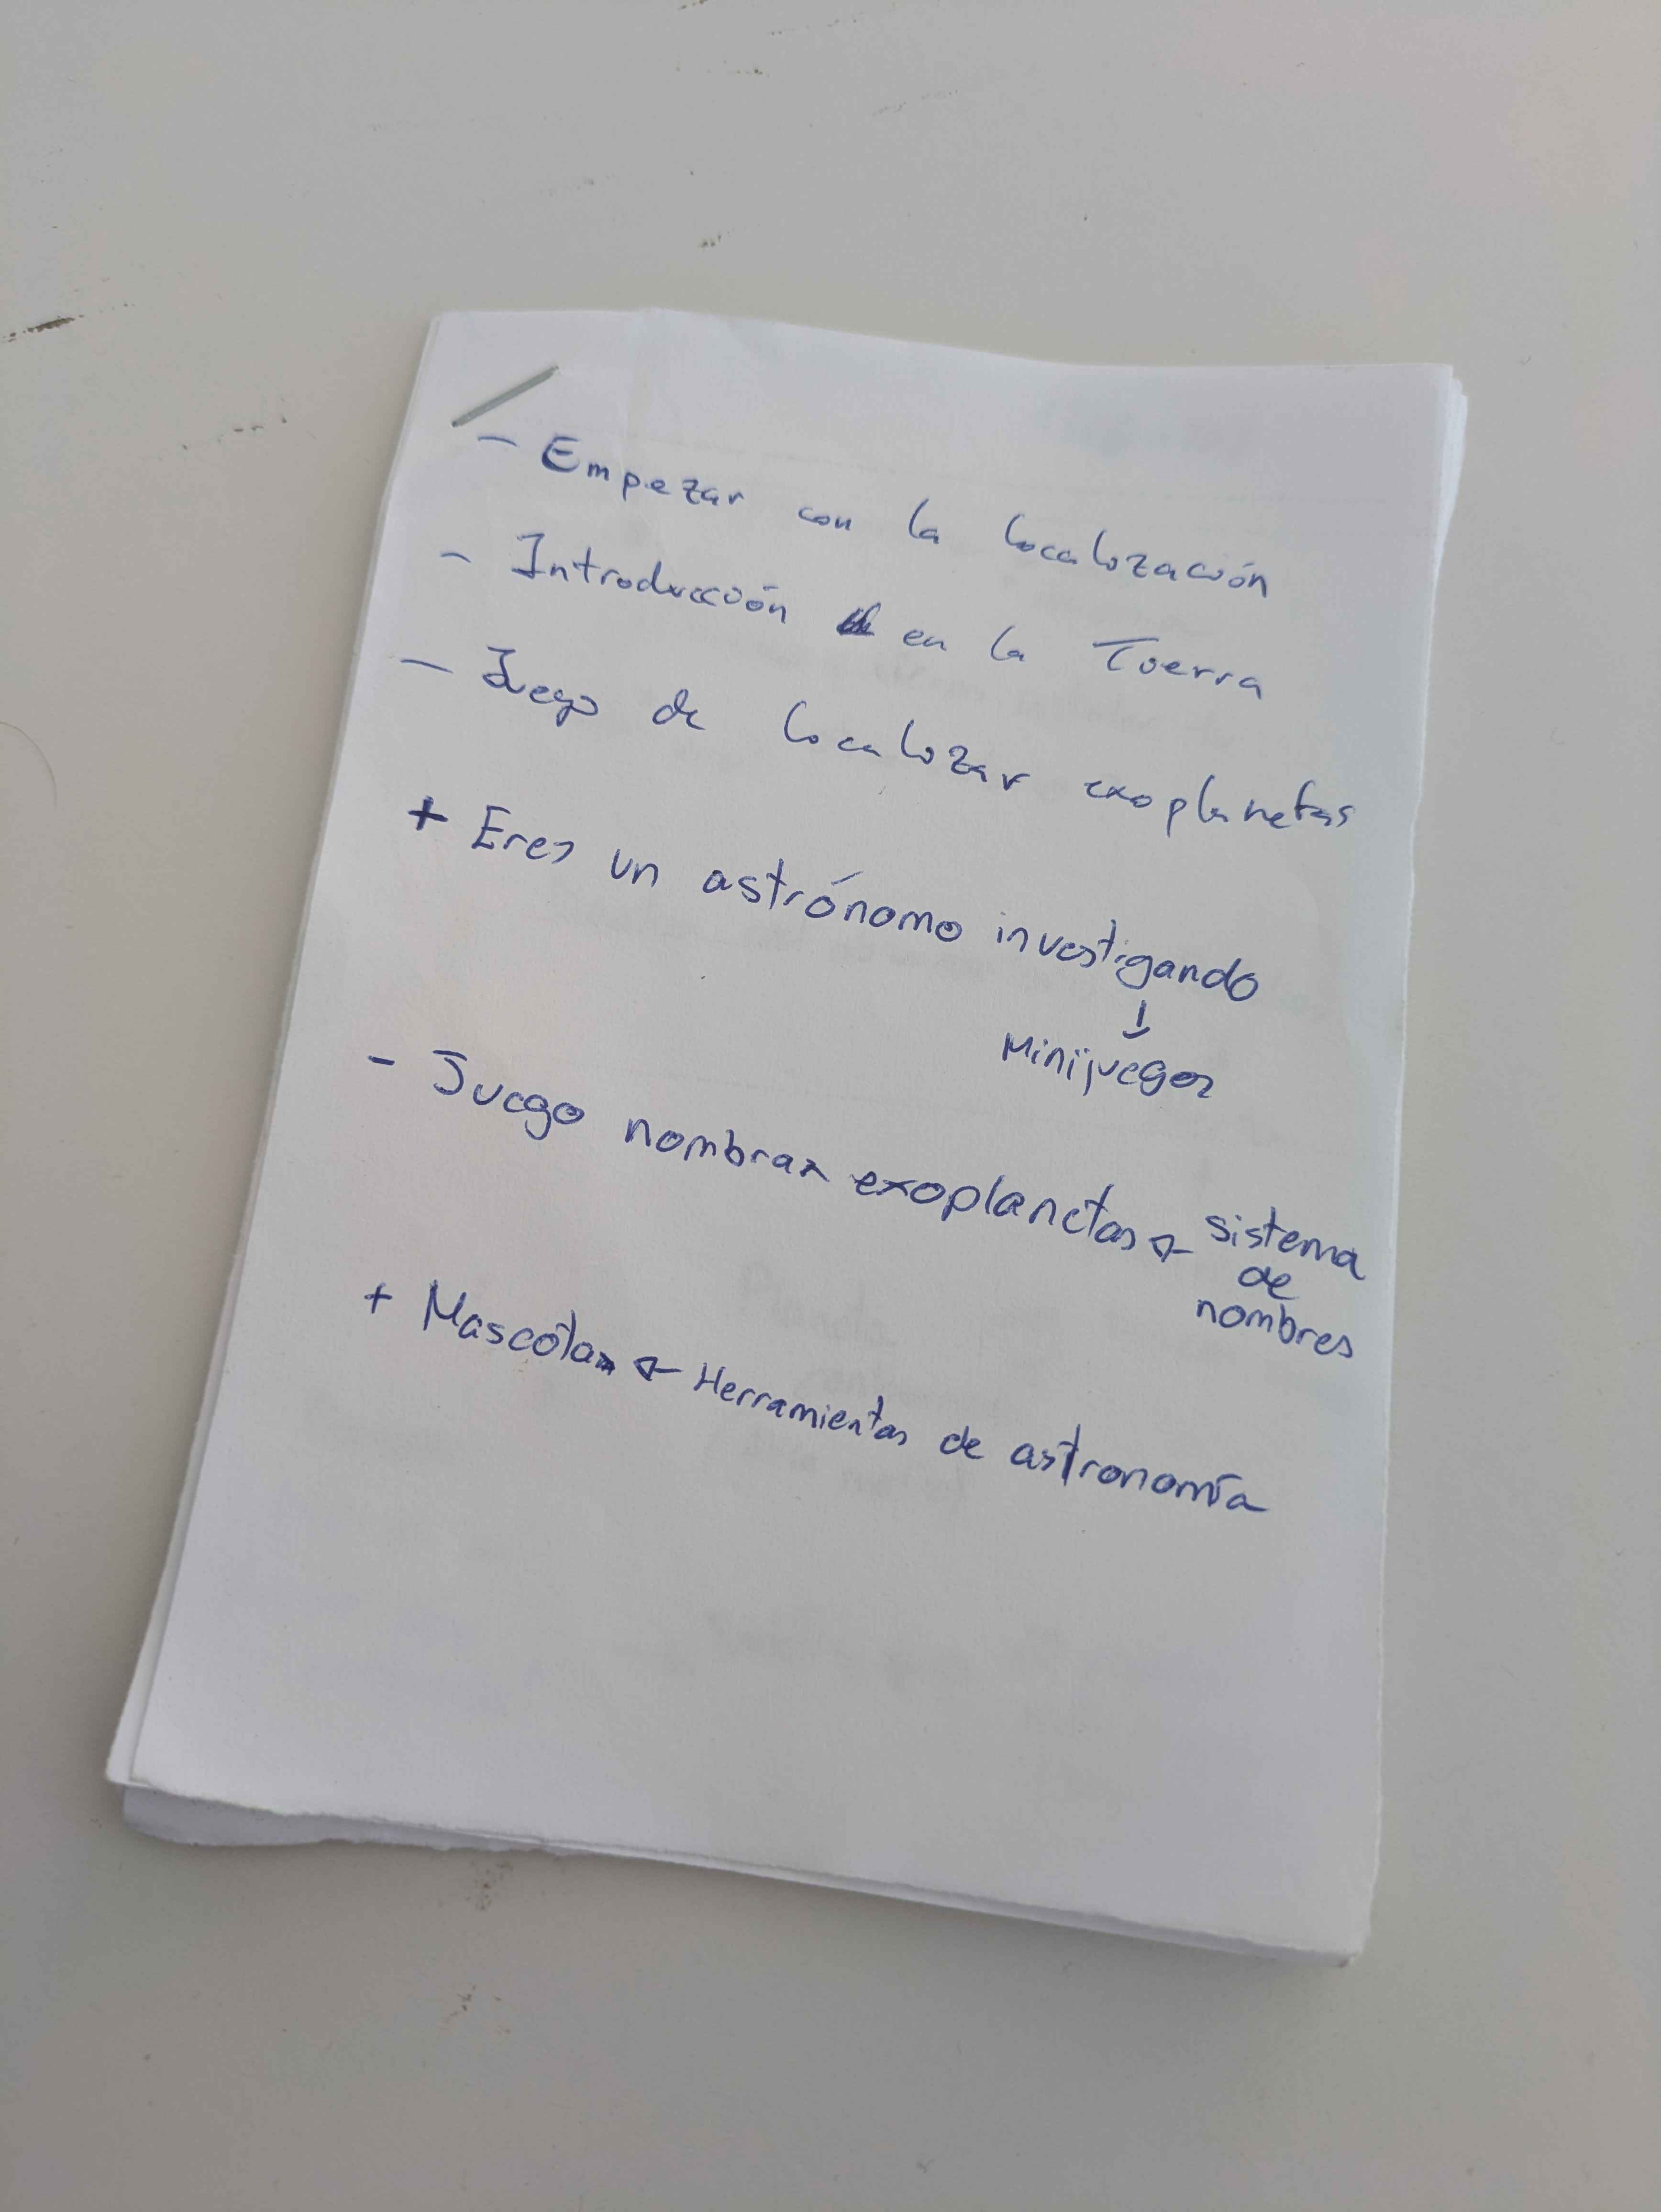 - Empezar con la localización
- Introducción en la Tierra
- Juego de localizar exoplanetas
+ Eres un astrónomo investigando
↓
Minijuegos
- Juego nombrar exoplanetas ← sistema
de
nombres
+ Mascota ← Herramientas de astronomía